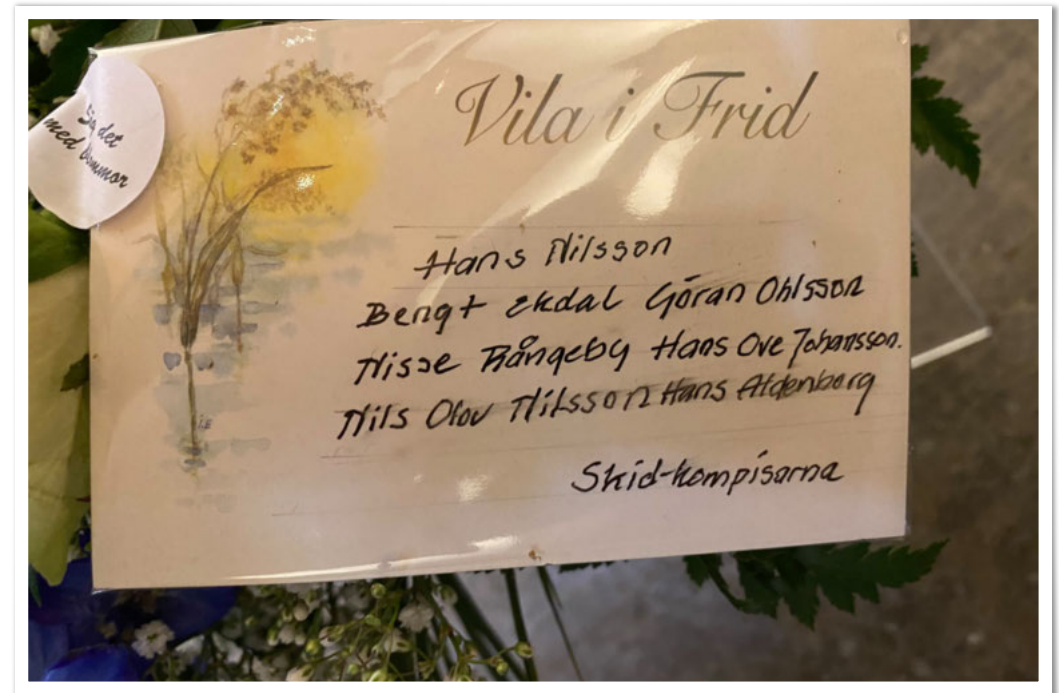 Säg det
med blommor
Vila i Frid
Hans Nilsson
Bengt Ekdal Göran Ohlsson
Nisse Rångeby Hans Ove Johansson.
Nils Olov Nilsson Hans Aldenborg
Skid-kompisarna